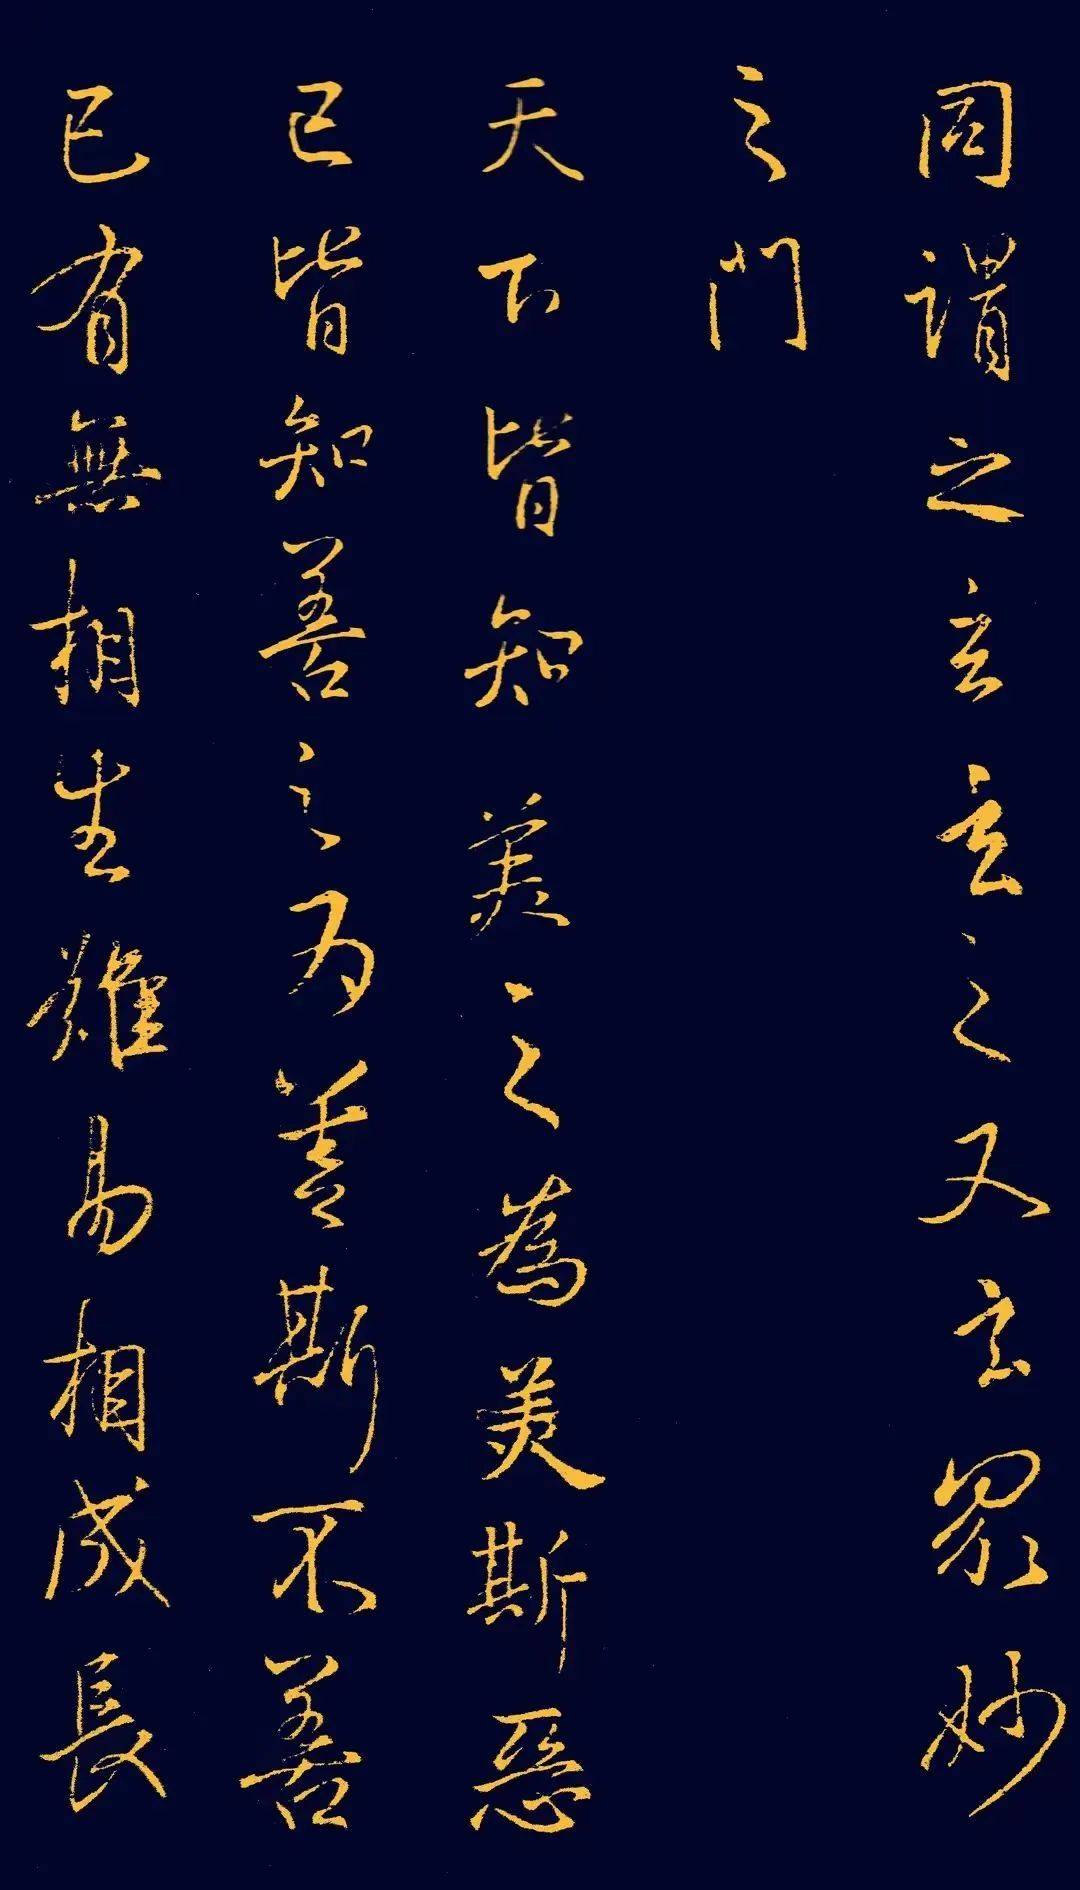 同謂之玄玄之又玄眾妙
之門
天下皆知美之為美斯惡
已皆知善之为善斯不善
已有無相生難易相成長